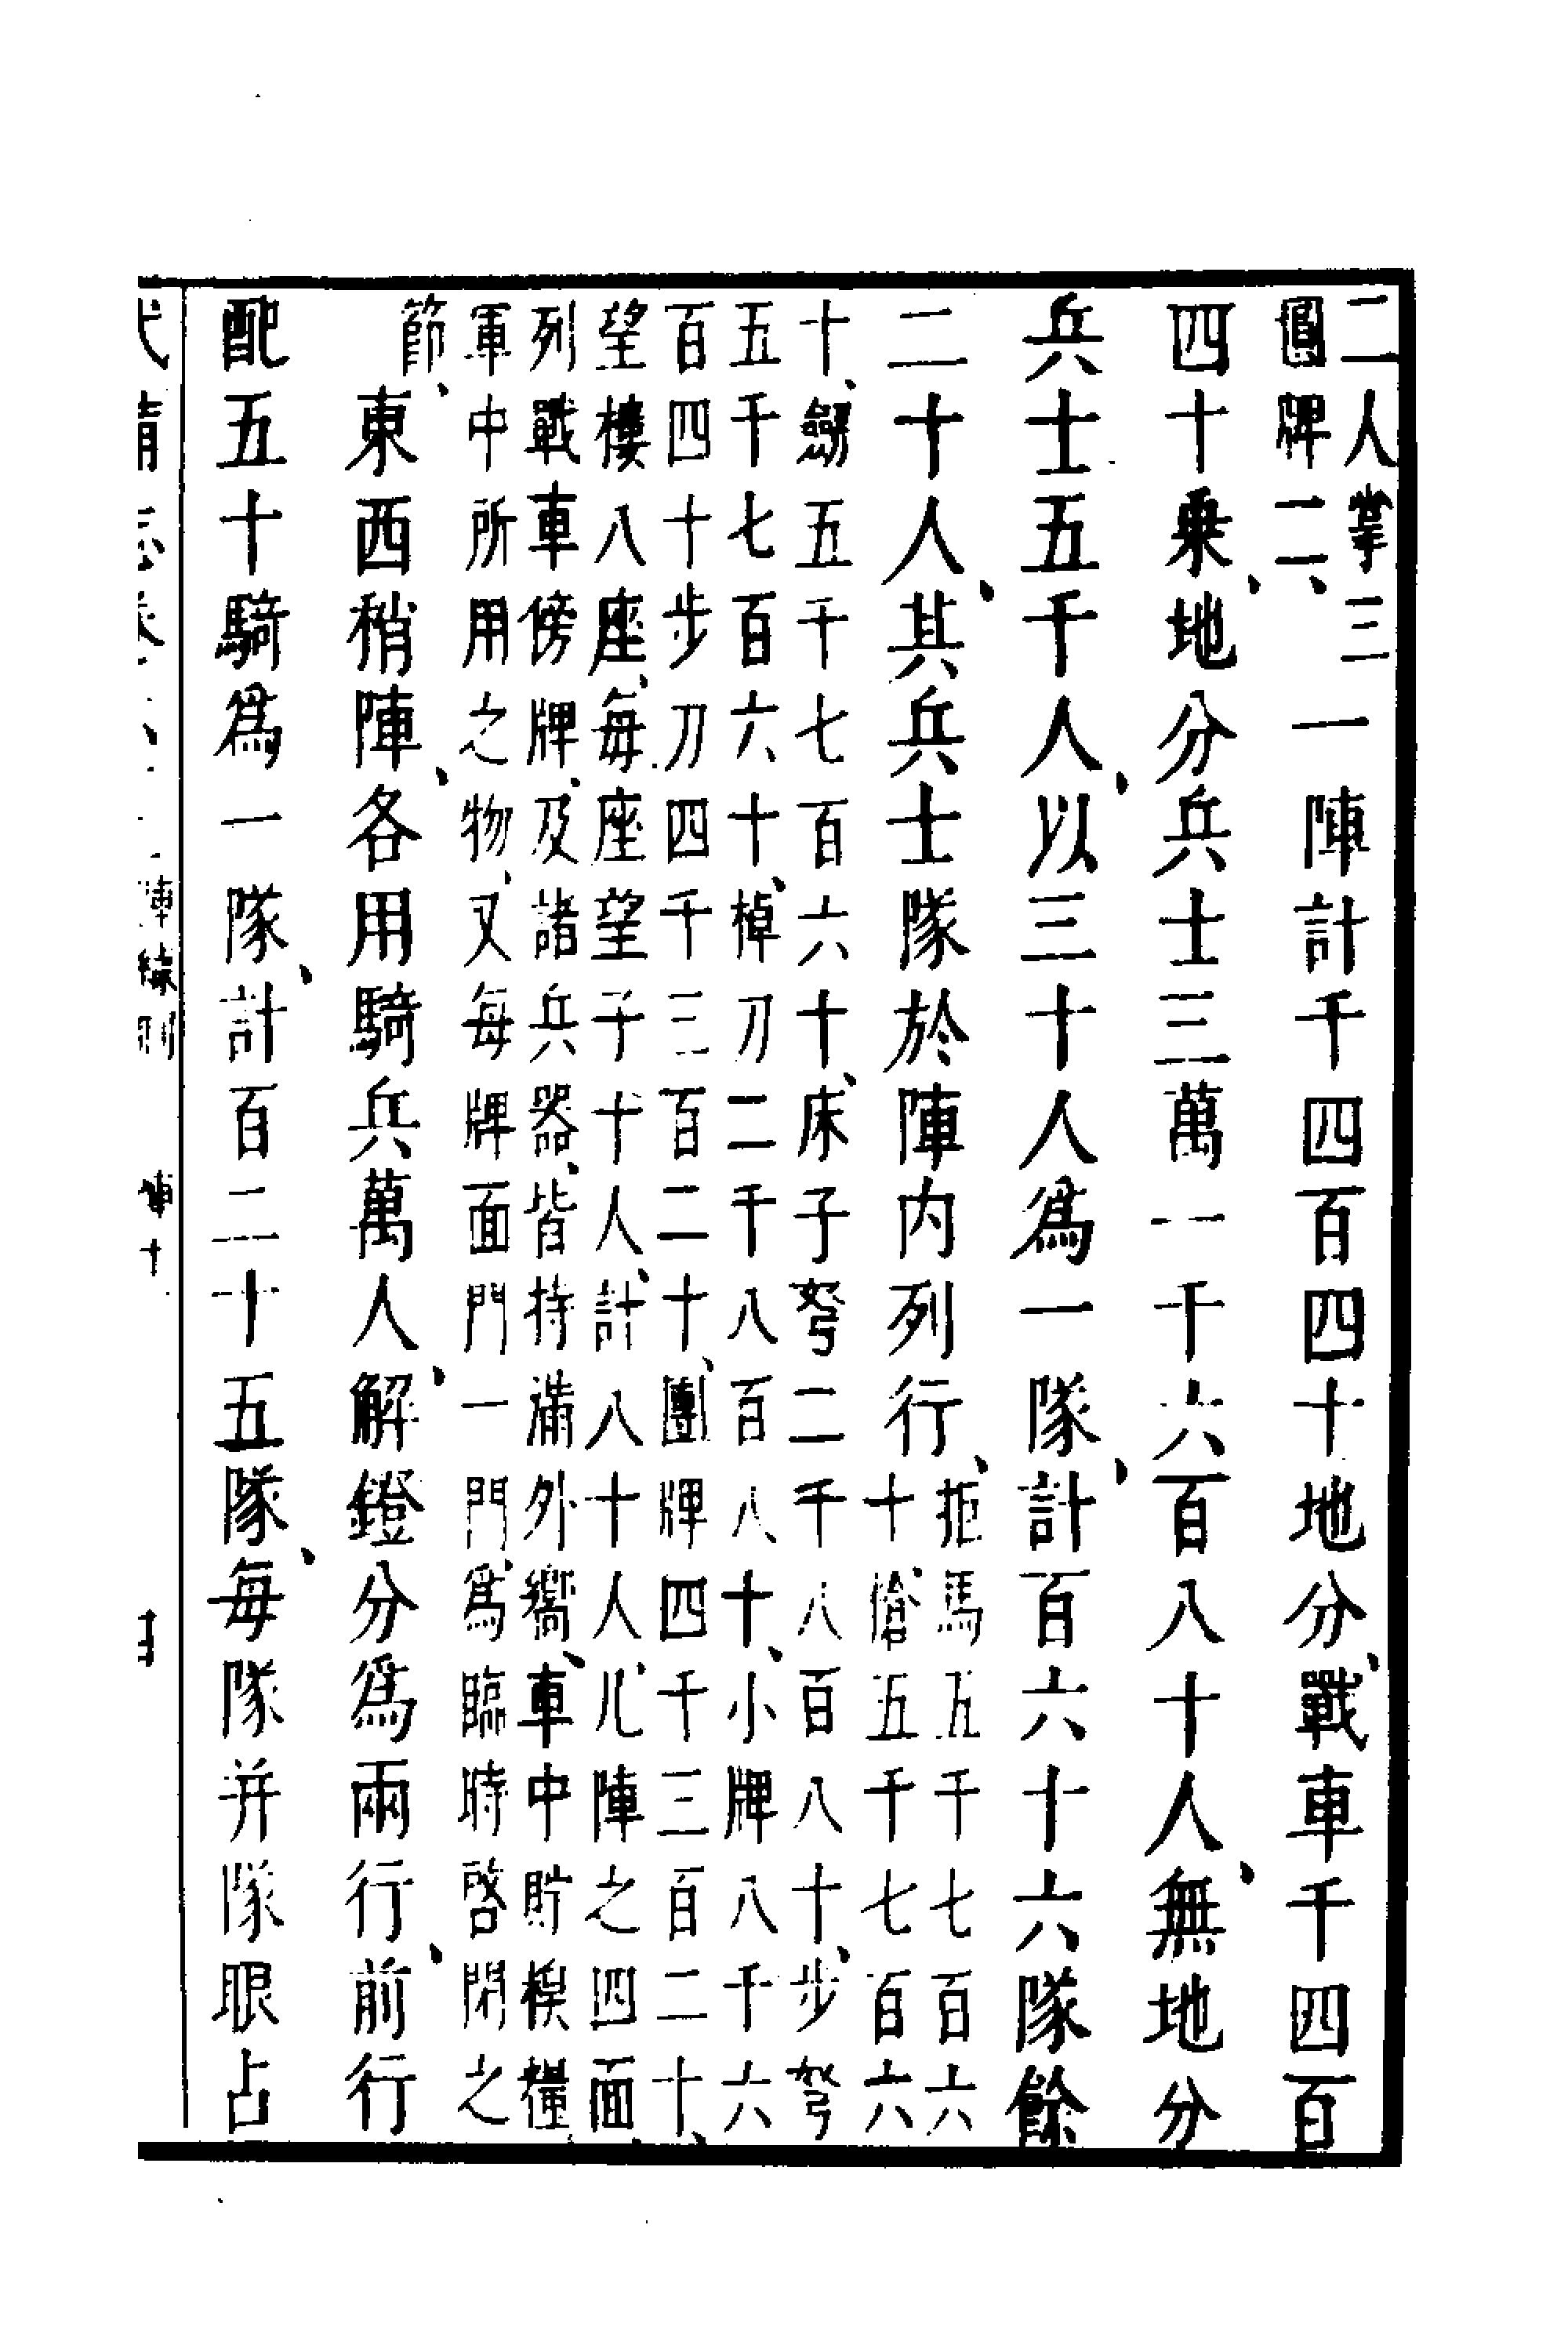 二人掌三
圓牌二、
一陣計千四百四十地分、戰車千四百
四十乘、地分兵士三萬一千六百八十人、無地分
兵士五千人、以三十人爲一隊、計百六十六隊餘
二十人、其兵士隊於陣内列行、
拒馬五千七百六
十、槍五千七百六
十、劔五千七百六十、床子弩二千八百八十、步弩
五千七百六十、棹刀二千八百八十、小牌八千六
百四十步刀四千三百二十、團牌四千三百二十、
望樓八座、每座望子十人、計八十人、凡陣之四面、
列戰車傍牌、及諸兵器、皆持滿外嚮、車中貯糗糧、
軍中所用之物、又每牌面門一門、爲臨時啓閉之
節、
東西稍陣、各用騎兵萬人、解鐙分爲兩行、前行
配五十騎爲一隊、計百二十五隊、每隊并隊眼占
陣練制
陣十